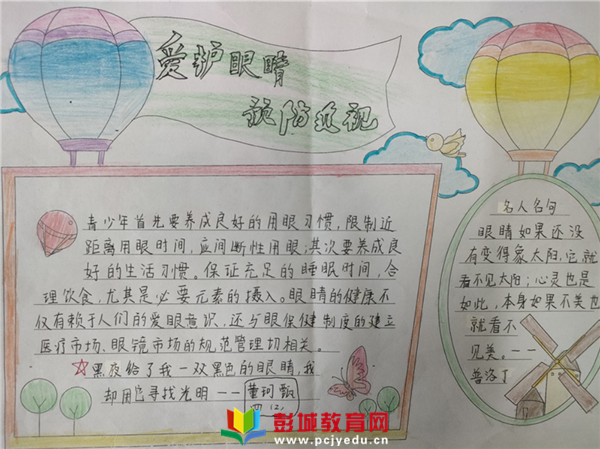 爱护眼睛
预防近视
青少年首先要养成良好的用眼习惯,限制近
距离用眼时间,应间断性用眼;其次要养成良
好的生活习惯。保证充足的睡眠时间,合
理饮食,尤其是必要元素的摄入。眼睛的健康不
仅有赖于人们的爱眼意识,还与眼保健制度的建立
医疗市场、眼镜市场的规范管理切相关。
☆黑夜给了我一双黑色的眼睛,我
却用它寻找光明——
四
名人名句
眼睛如果还没
有变得象太阳,它就
看不见太阳;心灵也是
如此,本身如果不美也
就看不
见美。——
普洛丁
彭城教育网
www.pcjyedu.cn